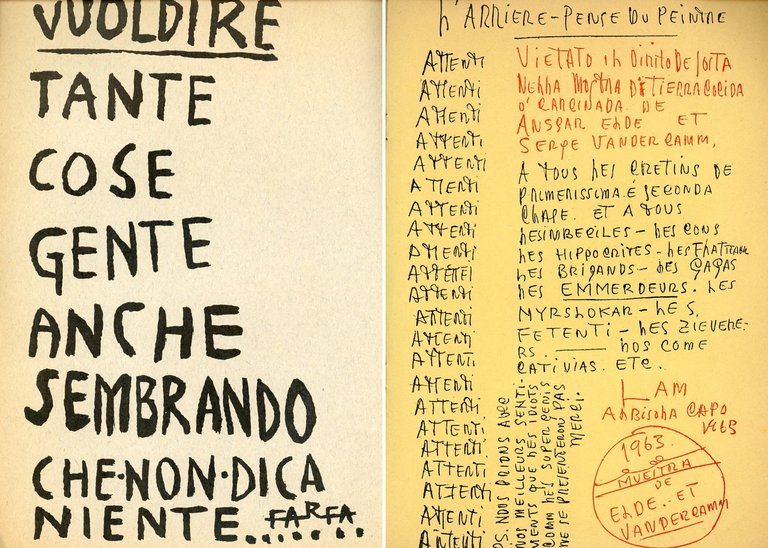 VUOLDIRE
TANTE
COSE
GENTE
ANCHE
SEMBRANDO
CHE·NON·DICA
NIENTE........ FARFA
L'ARRIERE-PENSE DU PEINTRE
ATTENTI
ATTENTI
ATTENTI
ATTENTI
ATTENTI
ATTENTI
ATTENTI
ATTENTI
ATTENTI
ATTENTI
ATTENTI
ATTENTI
ATTENTI
ATTENTI
ATTENTI
ATTENTI
ATTENTI
ATTENTI
ATTENTI
ATTENTI
ATTENTI
VIETATO IL DIRITO DE
NELLA MOSTRA DE TIERRACOCIDA
O' CARCINADA. DE
ANSGAR ELDE ET
SERGE VANDERCAMM,
A TOUS LES CRETINS DE
PRIMERISSIMA E SECONDA
CLASE. ET A TOUS
LES IMBECILES - LES CONS
LES HIPPOCRITES - LES
LES BRIGANDS - LES GAGAS
LES EMMERDEURS. LES
MYRSHOKAR - LES
FETENTI - LES ZIEVERE-
RS. — LOS COME
CATIVIAS. ETC.
PS. NOUS PRIONS AVEC
NOS MEILLEURS SENTI-
MENTS QUE LES IDIOTS
COMM LES SUPER GENIS
NE SE PRESENTERONT PAS
MERCI.
LAM
ALBISOLA CAPO
1963
1963.
MUESTRA
DE
ELDE. ET
VANDERCAMM